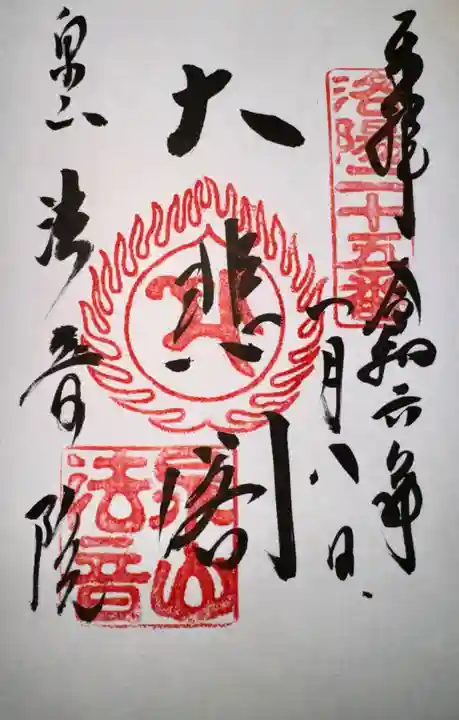 奉拝
洛陽二十五番
令和六年
一月八日
大悲閣
泉山
法音院
泉山
法音